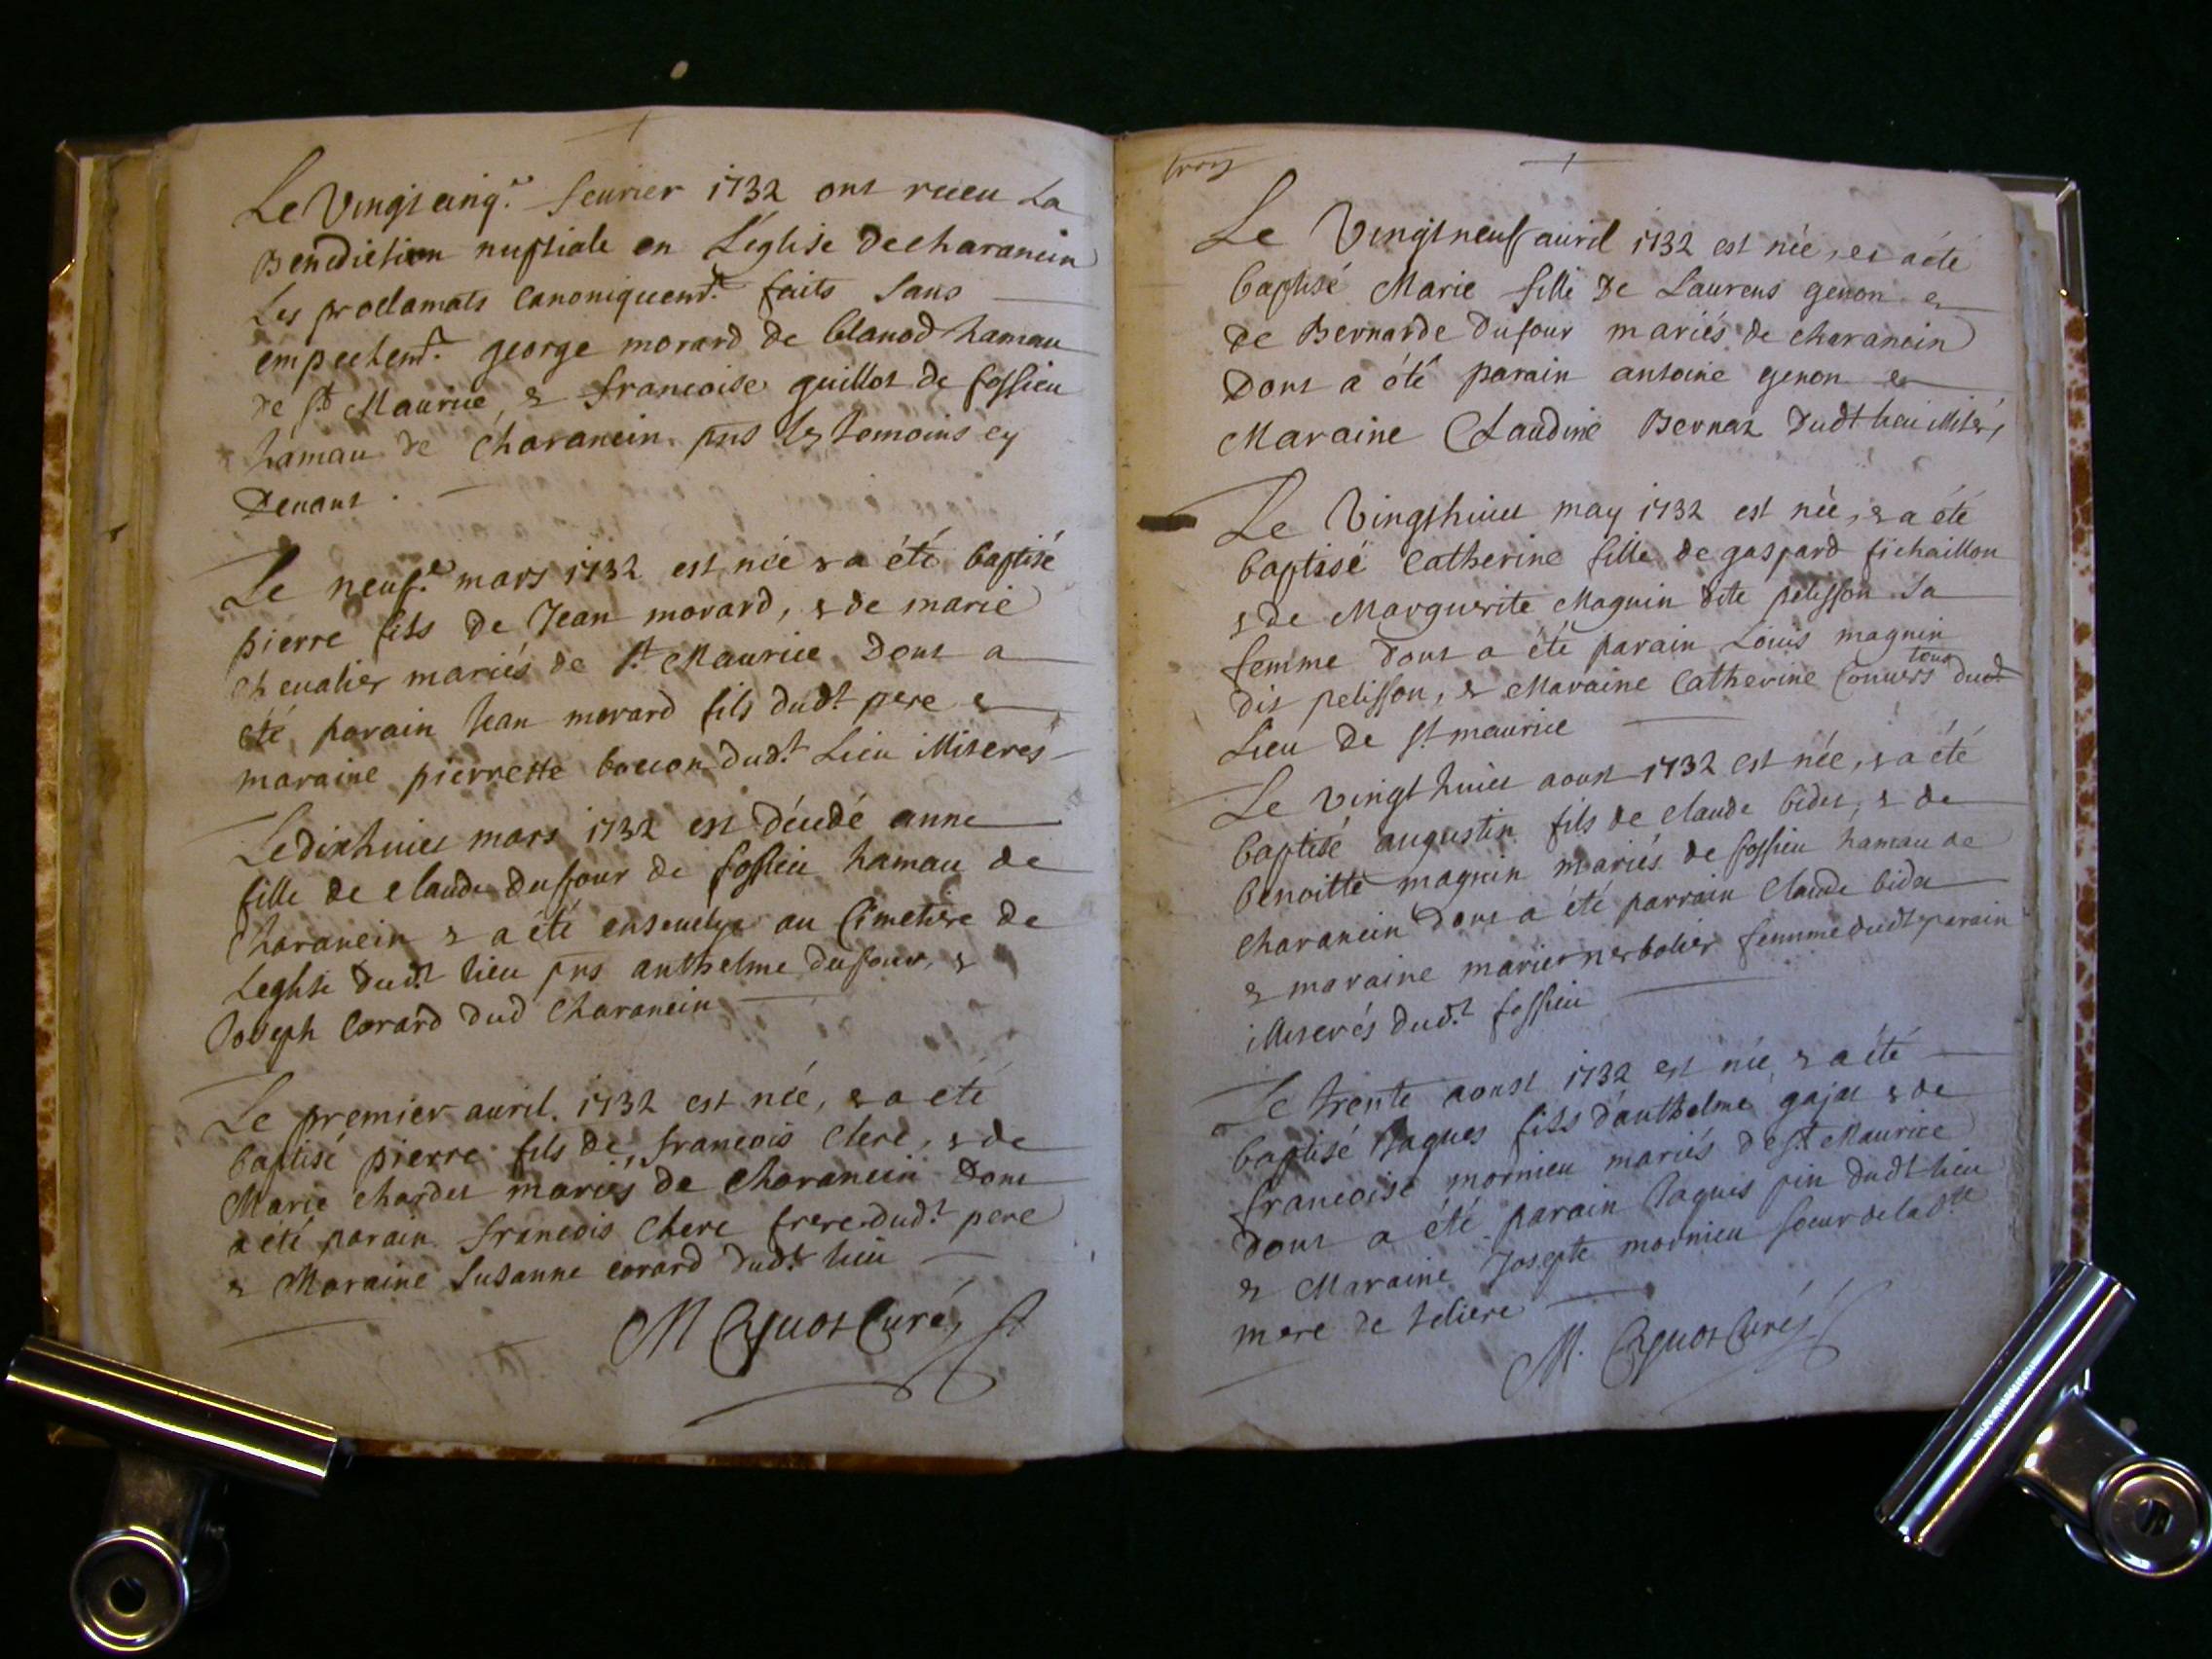 Le Vingt cinq.e feurier 1732 ont receu La
Benediction nuptiale en L'eglise de charancin
Les proclamats Canoniquemt. faits sans
empechemt. george morard de blanod hamau
de st Maurice, & francoise guillot de fossieu
hamau de Charancin. pns les temoins cy
Deuant.
Le neuf.e mars 1732 est née & a été baptisé
pierre fils de Jean morard, & de marie
cheualier mariés de st. Maurice Dont a
été parain Jean morard fils dudt. pere &
maraine pierrette boccon dudt. Lieu illiterés
Le dixhuict mars 1732 est décedé anne
fille de claude dufour de fossieu hamau de
Charancin & a été enseuelye au Cimetiere de
Leglise dudt. lieu pns anthelme dufour, &
Joseph Corard dud Charancin
Le premier auril. 1732 est née, & a eté
baptisé pierre fils de francois Clerc, & de
Marie chardet mariés de Charancin Dont
a été parain francois Clerc frere dudt. pere
& Maraine Susanne corard dudt. lieu
M Cyuot Curé
troy
Le Vingt neuf auril 1732 est née, et a été
baptisé Marie fille De Laurens genon et
De Bernarde Dufour mariés de charancin
Dont a été parain antoine genon et
Maraine Claudine Bernaz dudt lieu illiterés
Le Vingt huict may 1732 est née, & a été
baptisé Catherine fille de gaspard fichaillon
& de Marguerite Magnin dite pelisson sa
femme dont a été parain Louis magnin
tous
dit pelisson, & Maraine Catherine Conuers dudt
Lieu de st maurice
Le vingt huict aoust 1732 est née, & a été
baptisé augustin fils de claude bidet, & de
benoitte magnin mariés de fossieu hamau de
charancin dont a été parrain Claude bidet
& maraine marie nerbolier femme dudt parain
illiterés dudt. fossieu
Le trente aoust 1732 est née & a été
baptisé Jaques fils d'anthelme gajat & de
francoise mornieu mariés de st Maurice
dont a été parain Jaques pin dudt lieu
& Maraine Josepte mornieu soeur de la dte
mere de teliere
M. Cyuot Curé